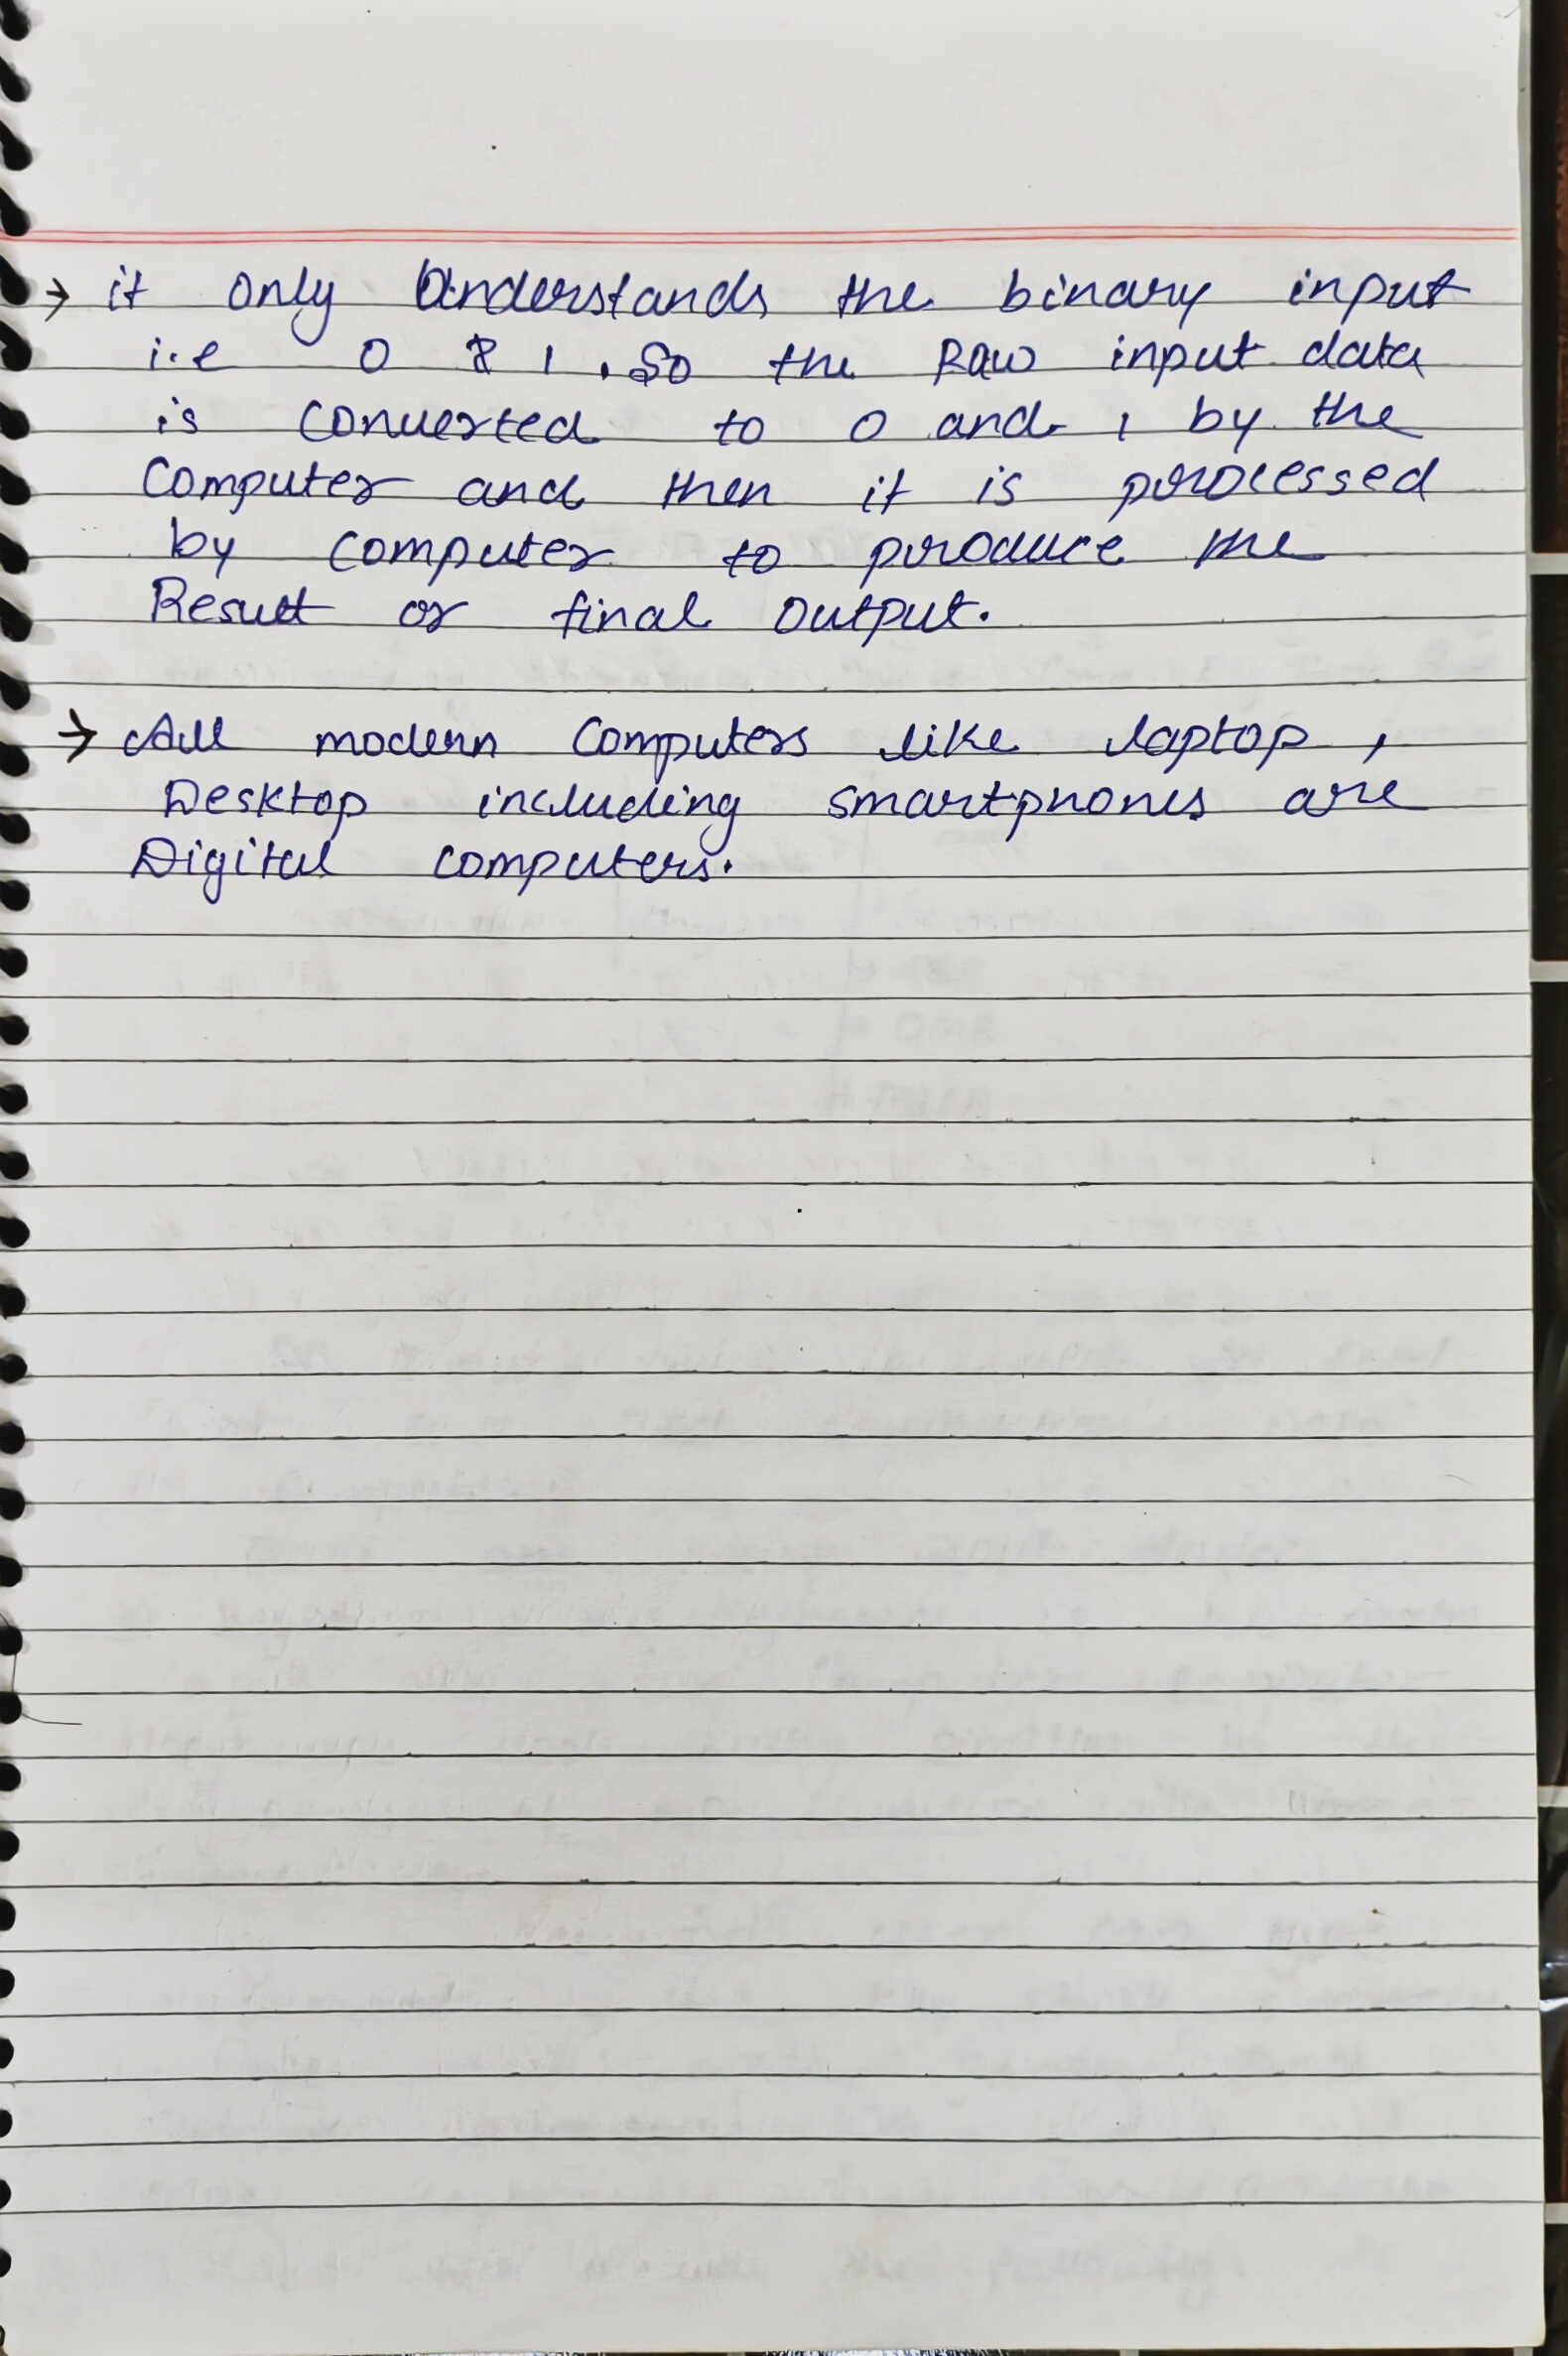 → it only Understands the binary input
i.e 0 & 1 . So the Raw input data
is Converted to 0 and 1 by the
Computer and then it is processed
by Computer to produce the
Result or final output.
→ All modern Computers like laptop ,
Desktop including smartphones are
Digital computers.